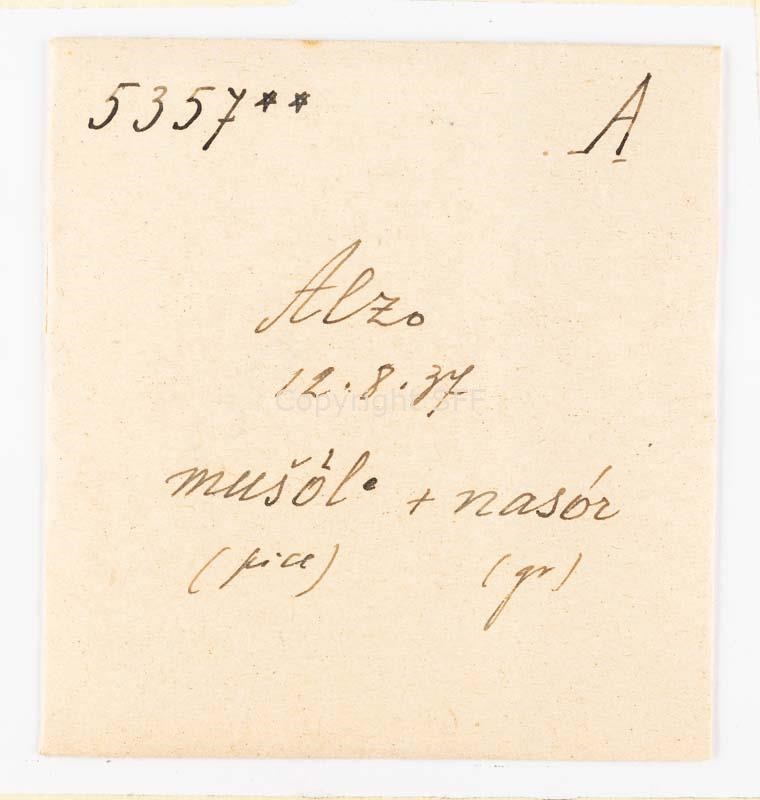 5357** A
Alzo
12.8.37
mušȍl• + nasór
(pice) (gr)
Copyright SFF